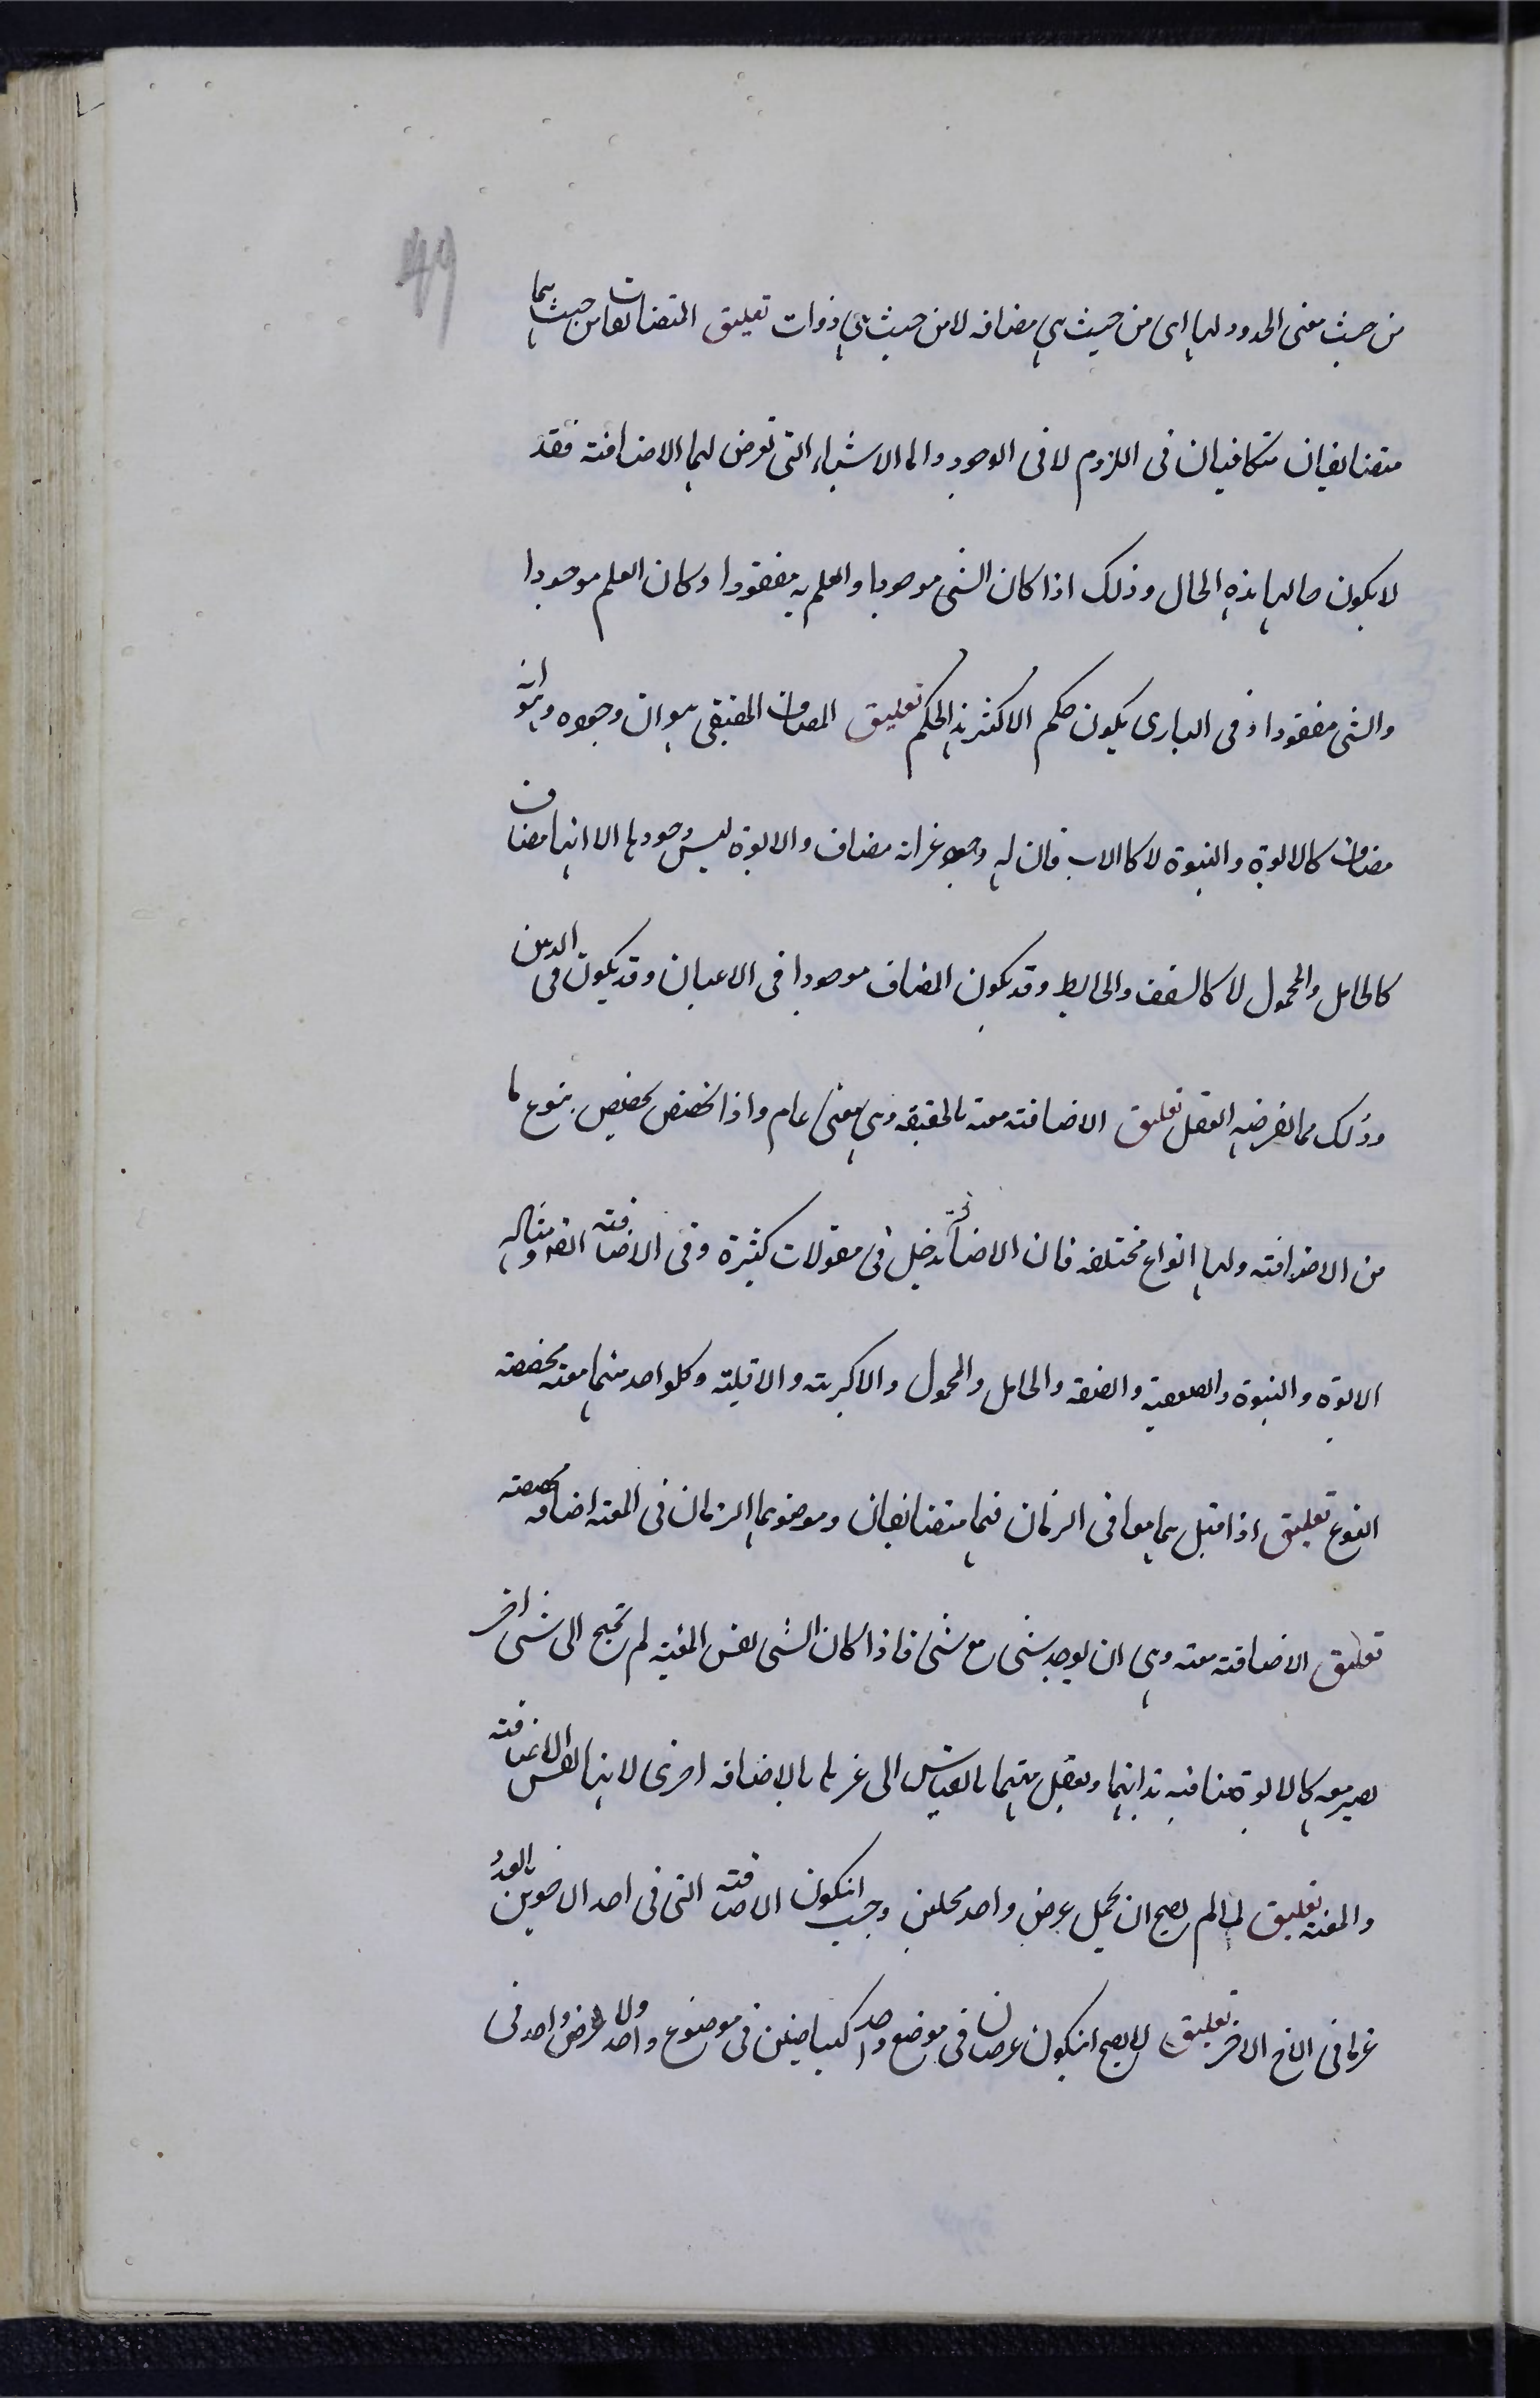 49
من حيث معنى الحدود لها اى من حيث هى مضافه لا من حيث هى ذوات تعليق المتضائفان من حيث هما
متضائفيان متكافيان فى اللزوم لا فى الوجود واما الاشياء التى تعرض لها الاضافته فقد
لا يكون حالها هذه الحال وذلك اذا كان الشى موجودا والعلم به مفقودا وكان العلم موجودا
والشى مفقودا وفى البارى يكون حكم الاكثر هذا الحكم تعليق المضاف الحقيقى هو ان وجوده هو انه
مضاف كالابوة والبنوة لا كالاب فان له وجود غير انه مضاف والابوة ليس وجودها الا انها مضاف
كالحامل والمحمول لا كالسقف والحايط وقد يكون المضاف موجودا فى الاعيان وقد يكون فى الذهن
وذلك مما يفرضه العقل تعليق الاضافته معية بالحقيقه وهى معنى عام واذا تخصص تخصيص بنوع ما
من الاضافته ولها انواع مختلفه فان الاضافة تدخل فى مقولات كثيرة وفى الاضافته ايضا ومثاله
الابوة والبنوة والضعفية والضعف والحامل والمحمول والاكبريته والاقليته وكلواحد منها معيه مخصصته
النوع تعليق اذا قيل هما معا فى الزمان فهما متضائفيان وموضوعهما الزمان فى المعيه اضافه مخصصته
تعليق الاضافته معيه وهى ان يوجد شى مع شى فاذا كان الشى نفس المعيه لم تحتج الى شى اخر
يصير معه كالابوة مضافيه بذاتها ويعقل مهيتها بالقياس الى غيرها بالاضافه اخرى لانها نفس الاضافته
والمعيه تعليق لما لم يصح ان يحمل عرض واحد محلين وجب انيكون الاضافته التى فى احد الاخوين بالعدد
غير ما فى الاخ الاخر تعليق لا يصح انيكون عرضان فى موضع واحد كبياضين فى موضوع واحد ولا عرض واحد فى